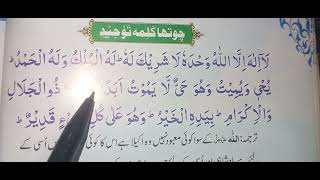 چوتھا کلمہ توحید
لَآ اِلٰهَ اِلَّا اللهُ وَحْدَهٗ لَا شَرِيْكَ لَهٗ لَهُ الْمُلْكُ وَلَهُ الْحَمْدُ
يُحْيٖ وَيُمِيْتُ وَهُوَ حَيٌّ لَّا يَمُوْتُ اَبَدًا ذُو الْجَلَالِ
وَالْاِكْرَامِ بِيَدِهِ الْخَيْرُ وَهُوَ عَلٰى كُلِّ شَيْءٍ قَدِيْرٌ
ترجمہ: اللہ کے سوا کوئی معبود نہیں وہ اکیلا ہے اس کا کوئی اسی کے